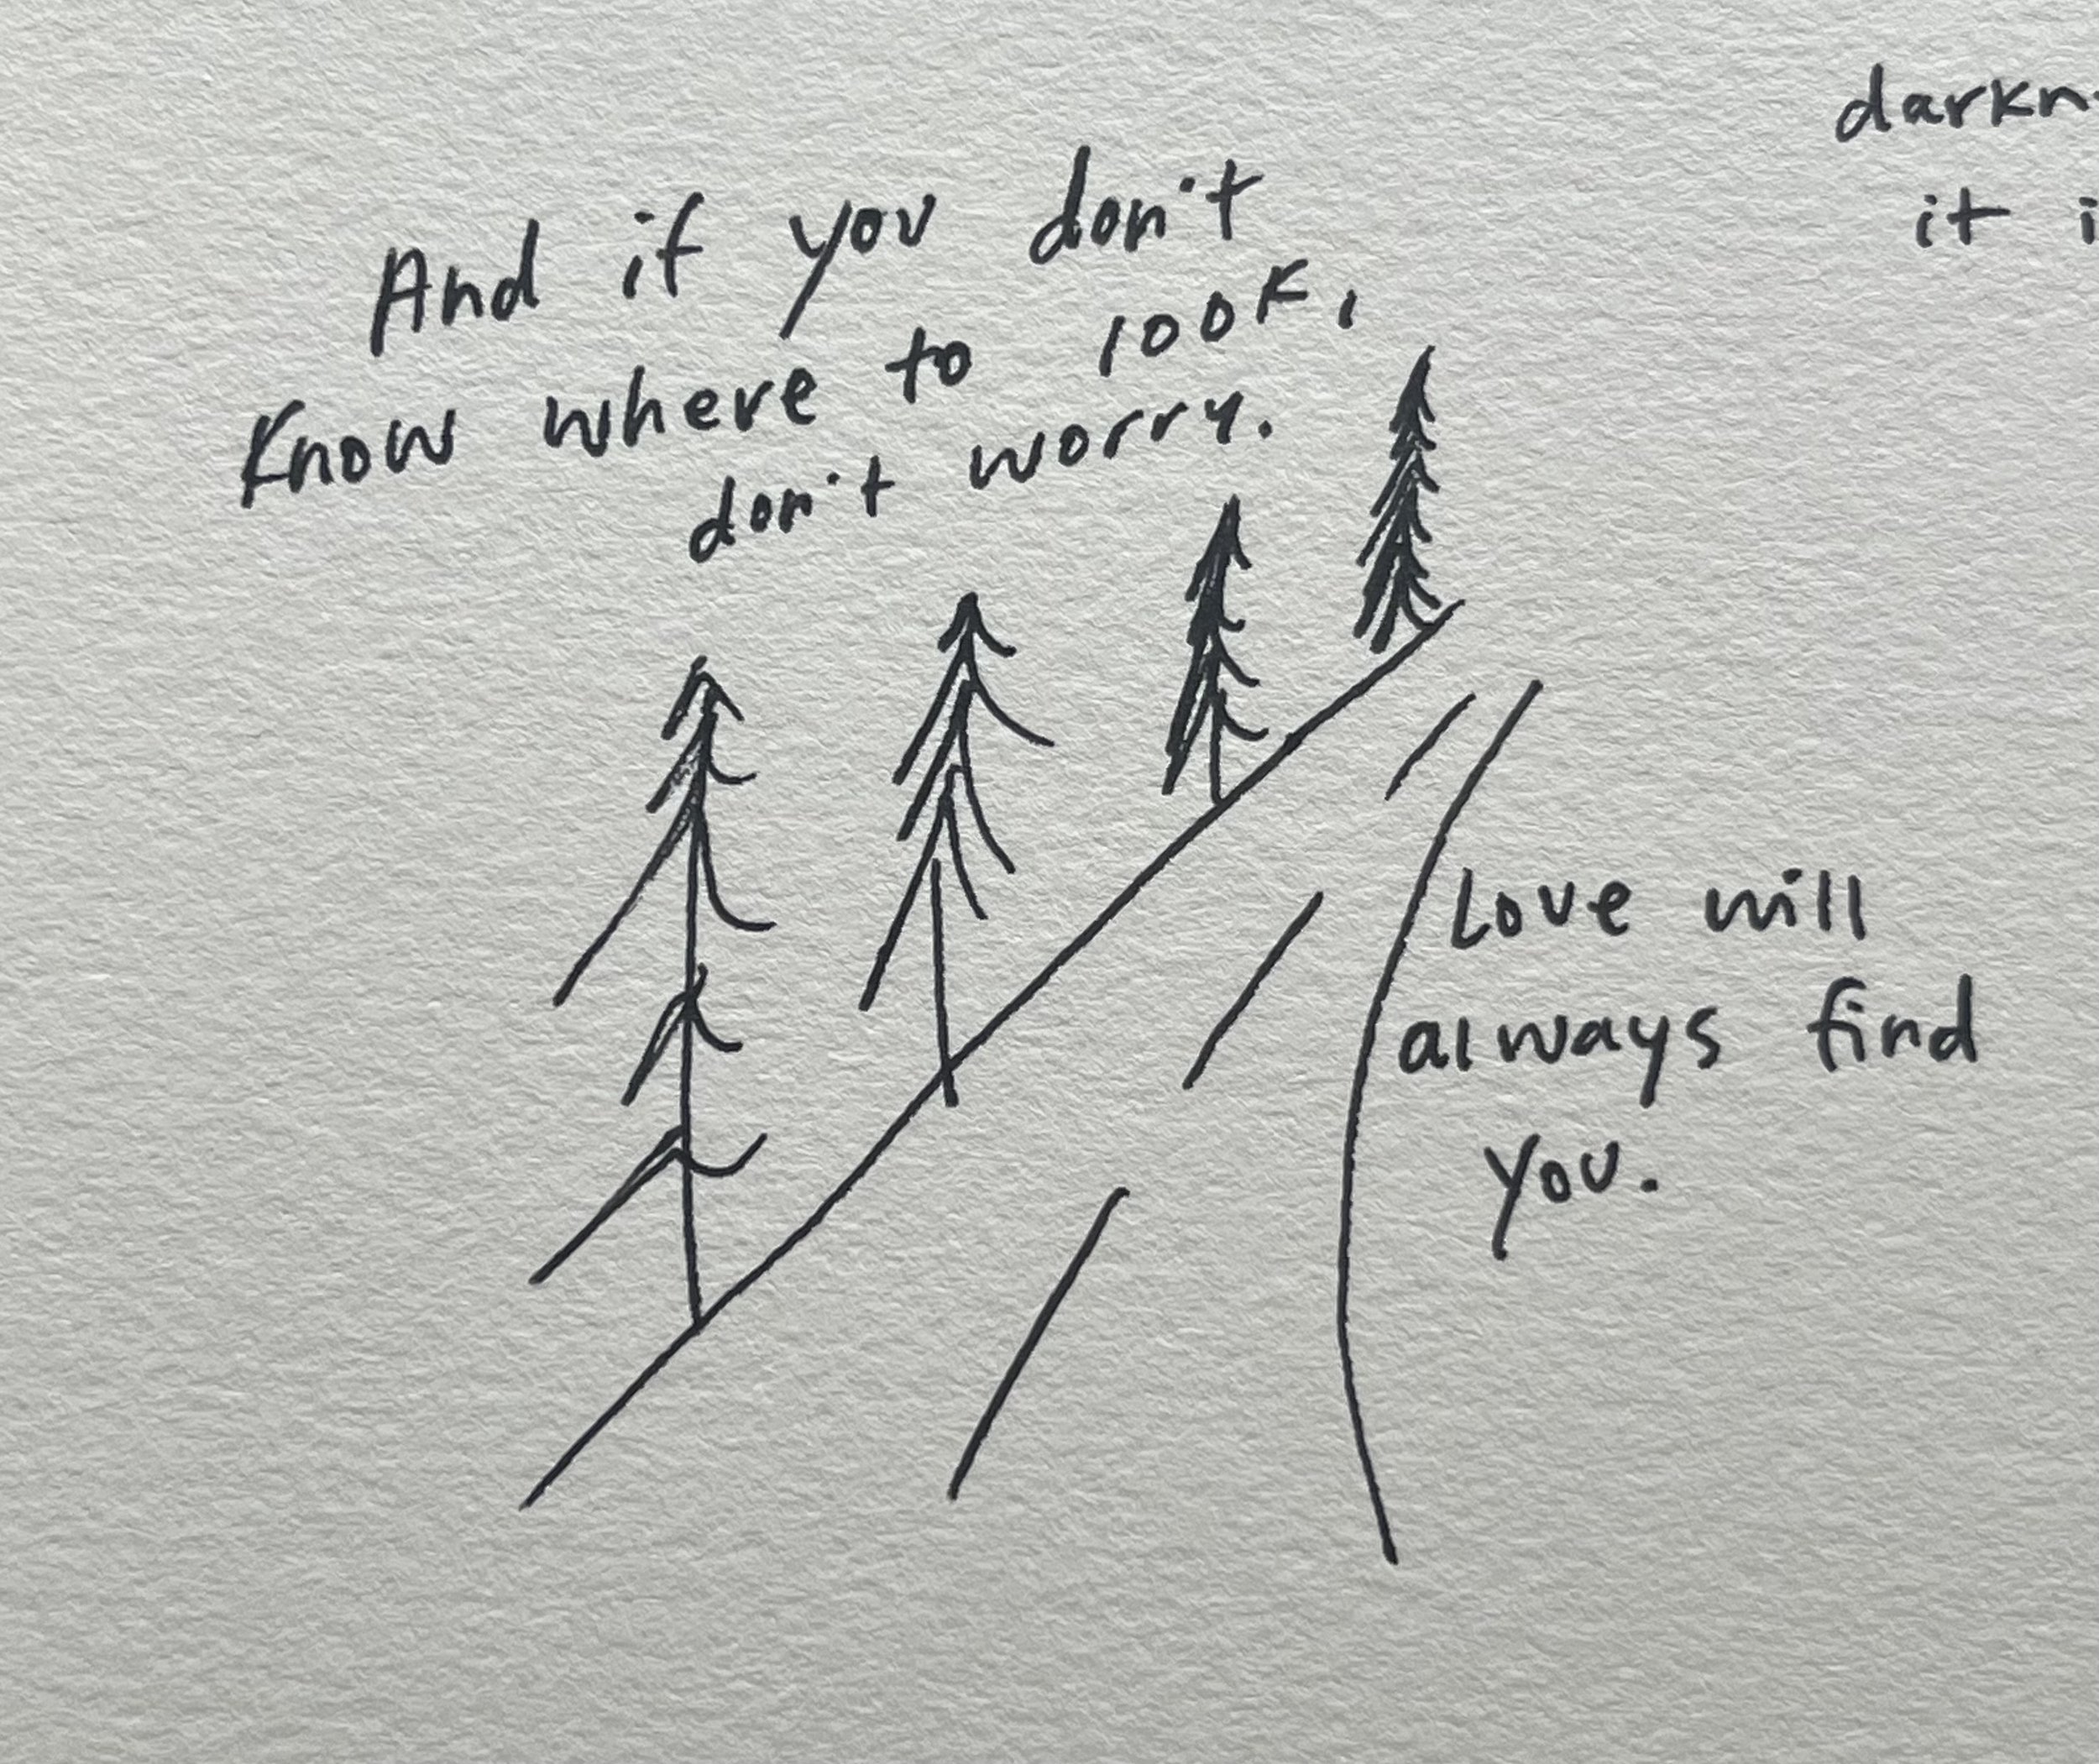 And if you don't
know where to look,
don't worry.
Love will
always find
you.
it